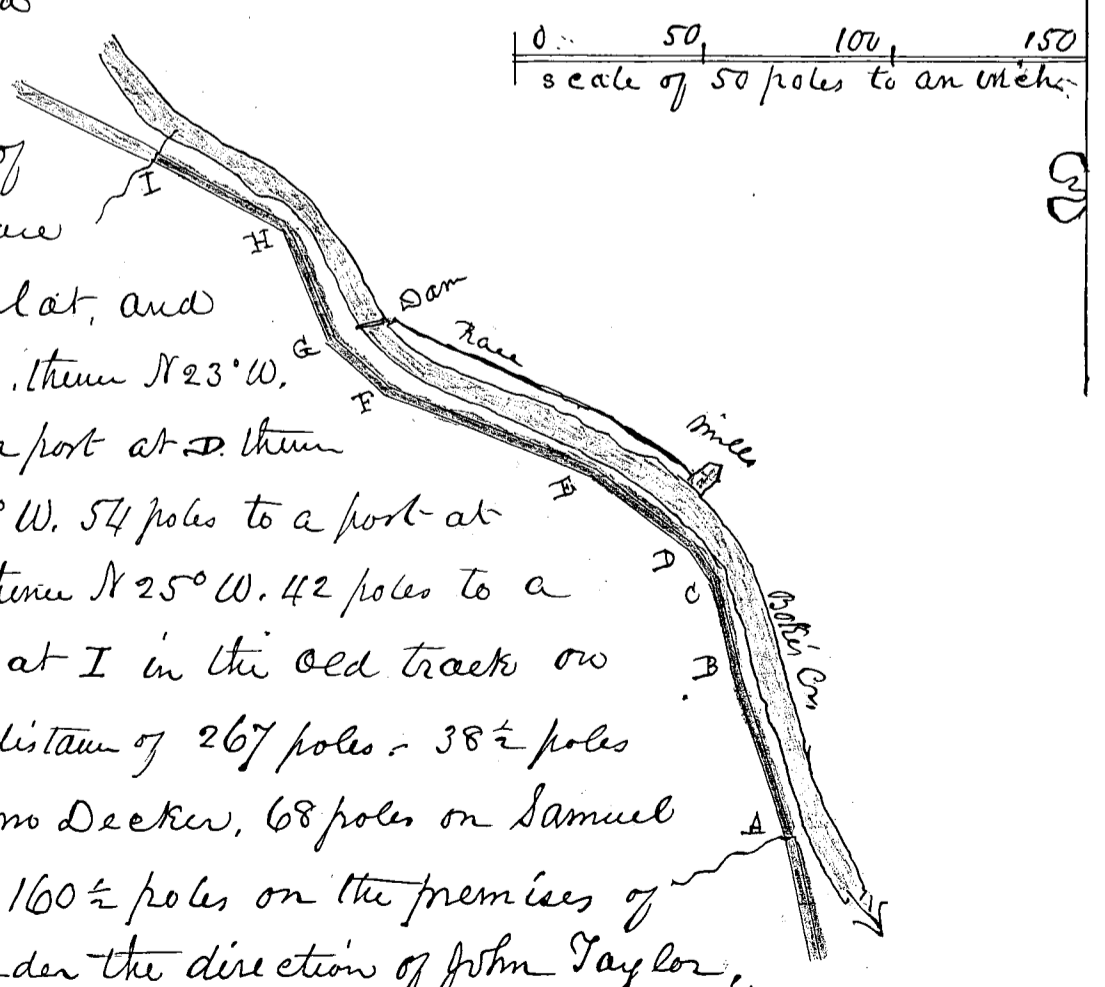 0 50 100 150
scale of 50 poles to an inch
of
I
H
lat, and
Dam
Race
G
thence N 23° W.
F
a post at D. thence
Mills
E
° W. 54 poles to a post at
D
thence N 25° W. 42 poles to a
C
Bokes Cr
at I in the old track on
B
distance of 267 poles - 38½ poles
no Decker, 68 poles on Samuel
A
160½ poles on the premises of
der the direction of John Taylor,